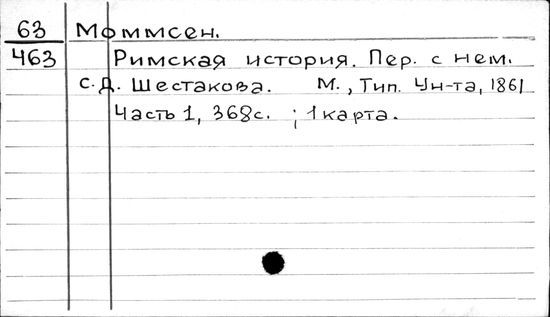 63 Моммсен.
463 Римская история. Пер. с нем.
С.Д. Шестакова. М., Тип. Ун-та, 1861
Часть 1, 368с. ; 1 карта.